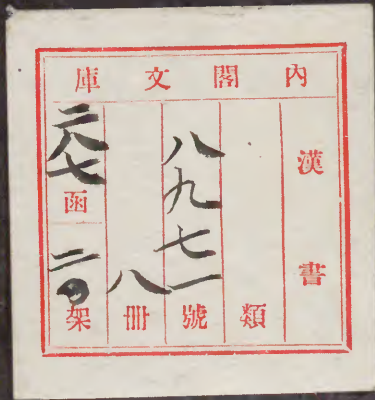 內閣文庫
漢書
類
八九七一號
八冊
二八七函
二〇架